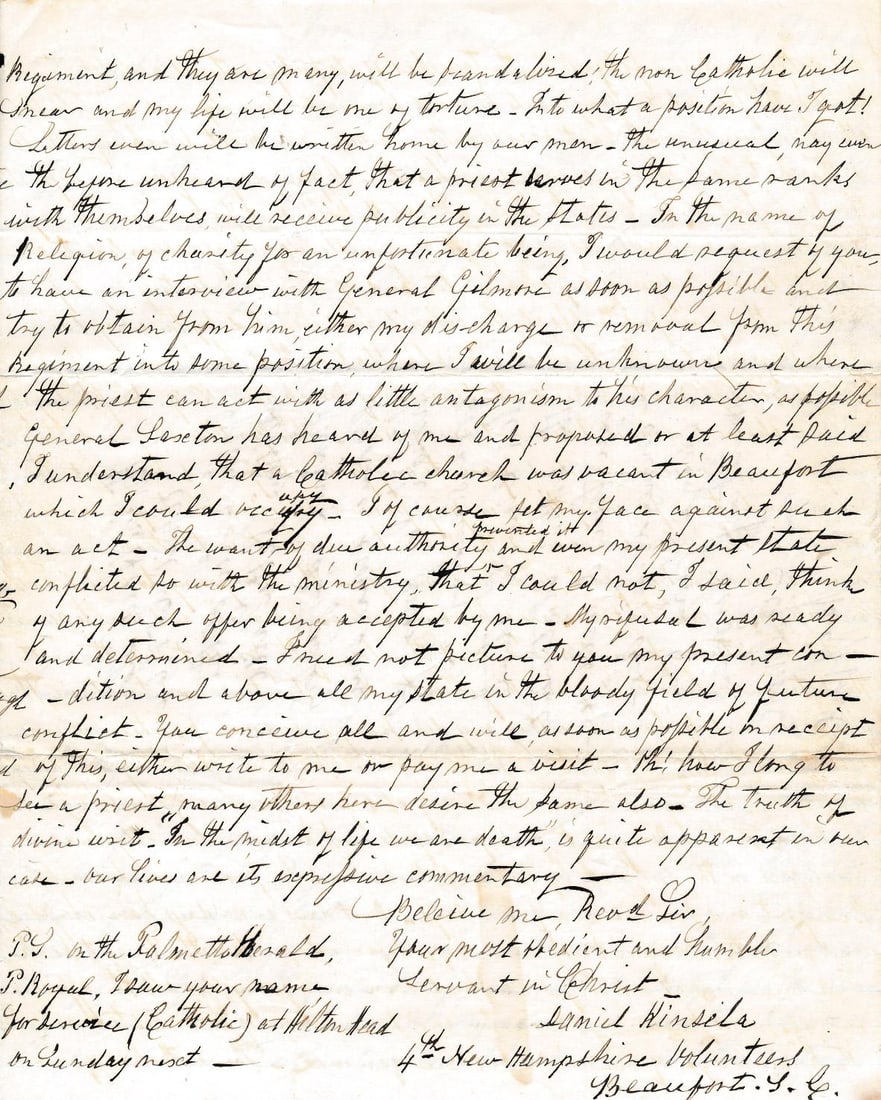 Regiment, and they are many, will be scandalised; the non Catholic will
sneer and my life will be one of torture - Into what a position have I got!
Letters even will be written home by our men - the unusual, nay even
the before unheard of fact, that a priest serves in the same ranks
with themselves, will receive publicity in the states - In the name of
Religion, of charity for an unfortunate being, I would request of you,
to have an interview with General Gilmore as soon as possible and
try to obtain from him, either my discharge or removal from this
Regiment into some position, where I will be unknown and where
the priest can act with as little antagonism to his character, as possible
General Saxton has heard of me and proposed or at least said
, I understand, that a Catholic church was vacant in Beaufort
which I could occupy - I of course set my face against such
an act - The want of due authority prevented it and even my present state
conflicted so with the ministry, that I could not, I said, think
of any such offer being accepted by me - My refusal was ready
and determined - I need not picture to you my present con -
- dition and above all my state in the bloody field of future
conflict - You conceive all and will, as soon as possible on receipt
of this, either write to me or pay me a visit - Oh! how I long to
see a priest, many others here desire the same also - The truth of
divine writ - "In the midst of life we are death", is quite apparent in our
case - our lives are its expressive commentary -
Beleive me, Revd Sir,
Your most obedient and humble
Servant in Christ
Daniel Kinsela
4th New Hampshire Volunteers
Beaufort. S. C.
P.S. on the Palmetto Herald,
P. Royal, I saw your name
for service (Catholic) at Hilton Head
on Sunday next -